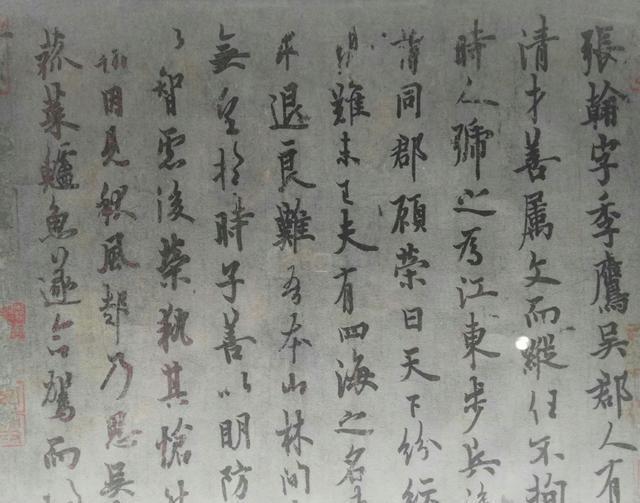 張翰字季鷹吳郡人有
清才善属文而縱任不拘
時人號之為江東步兵後
謂同郡顧榮曰天下紛紜
難未已夫有四海之名
求退良難吾本山林間
無望於時子善以明防
智慮後榮執其愴然
因見秋風起乃思吳
菰菜鱸魚遂命駕而